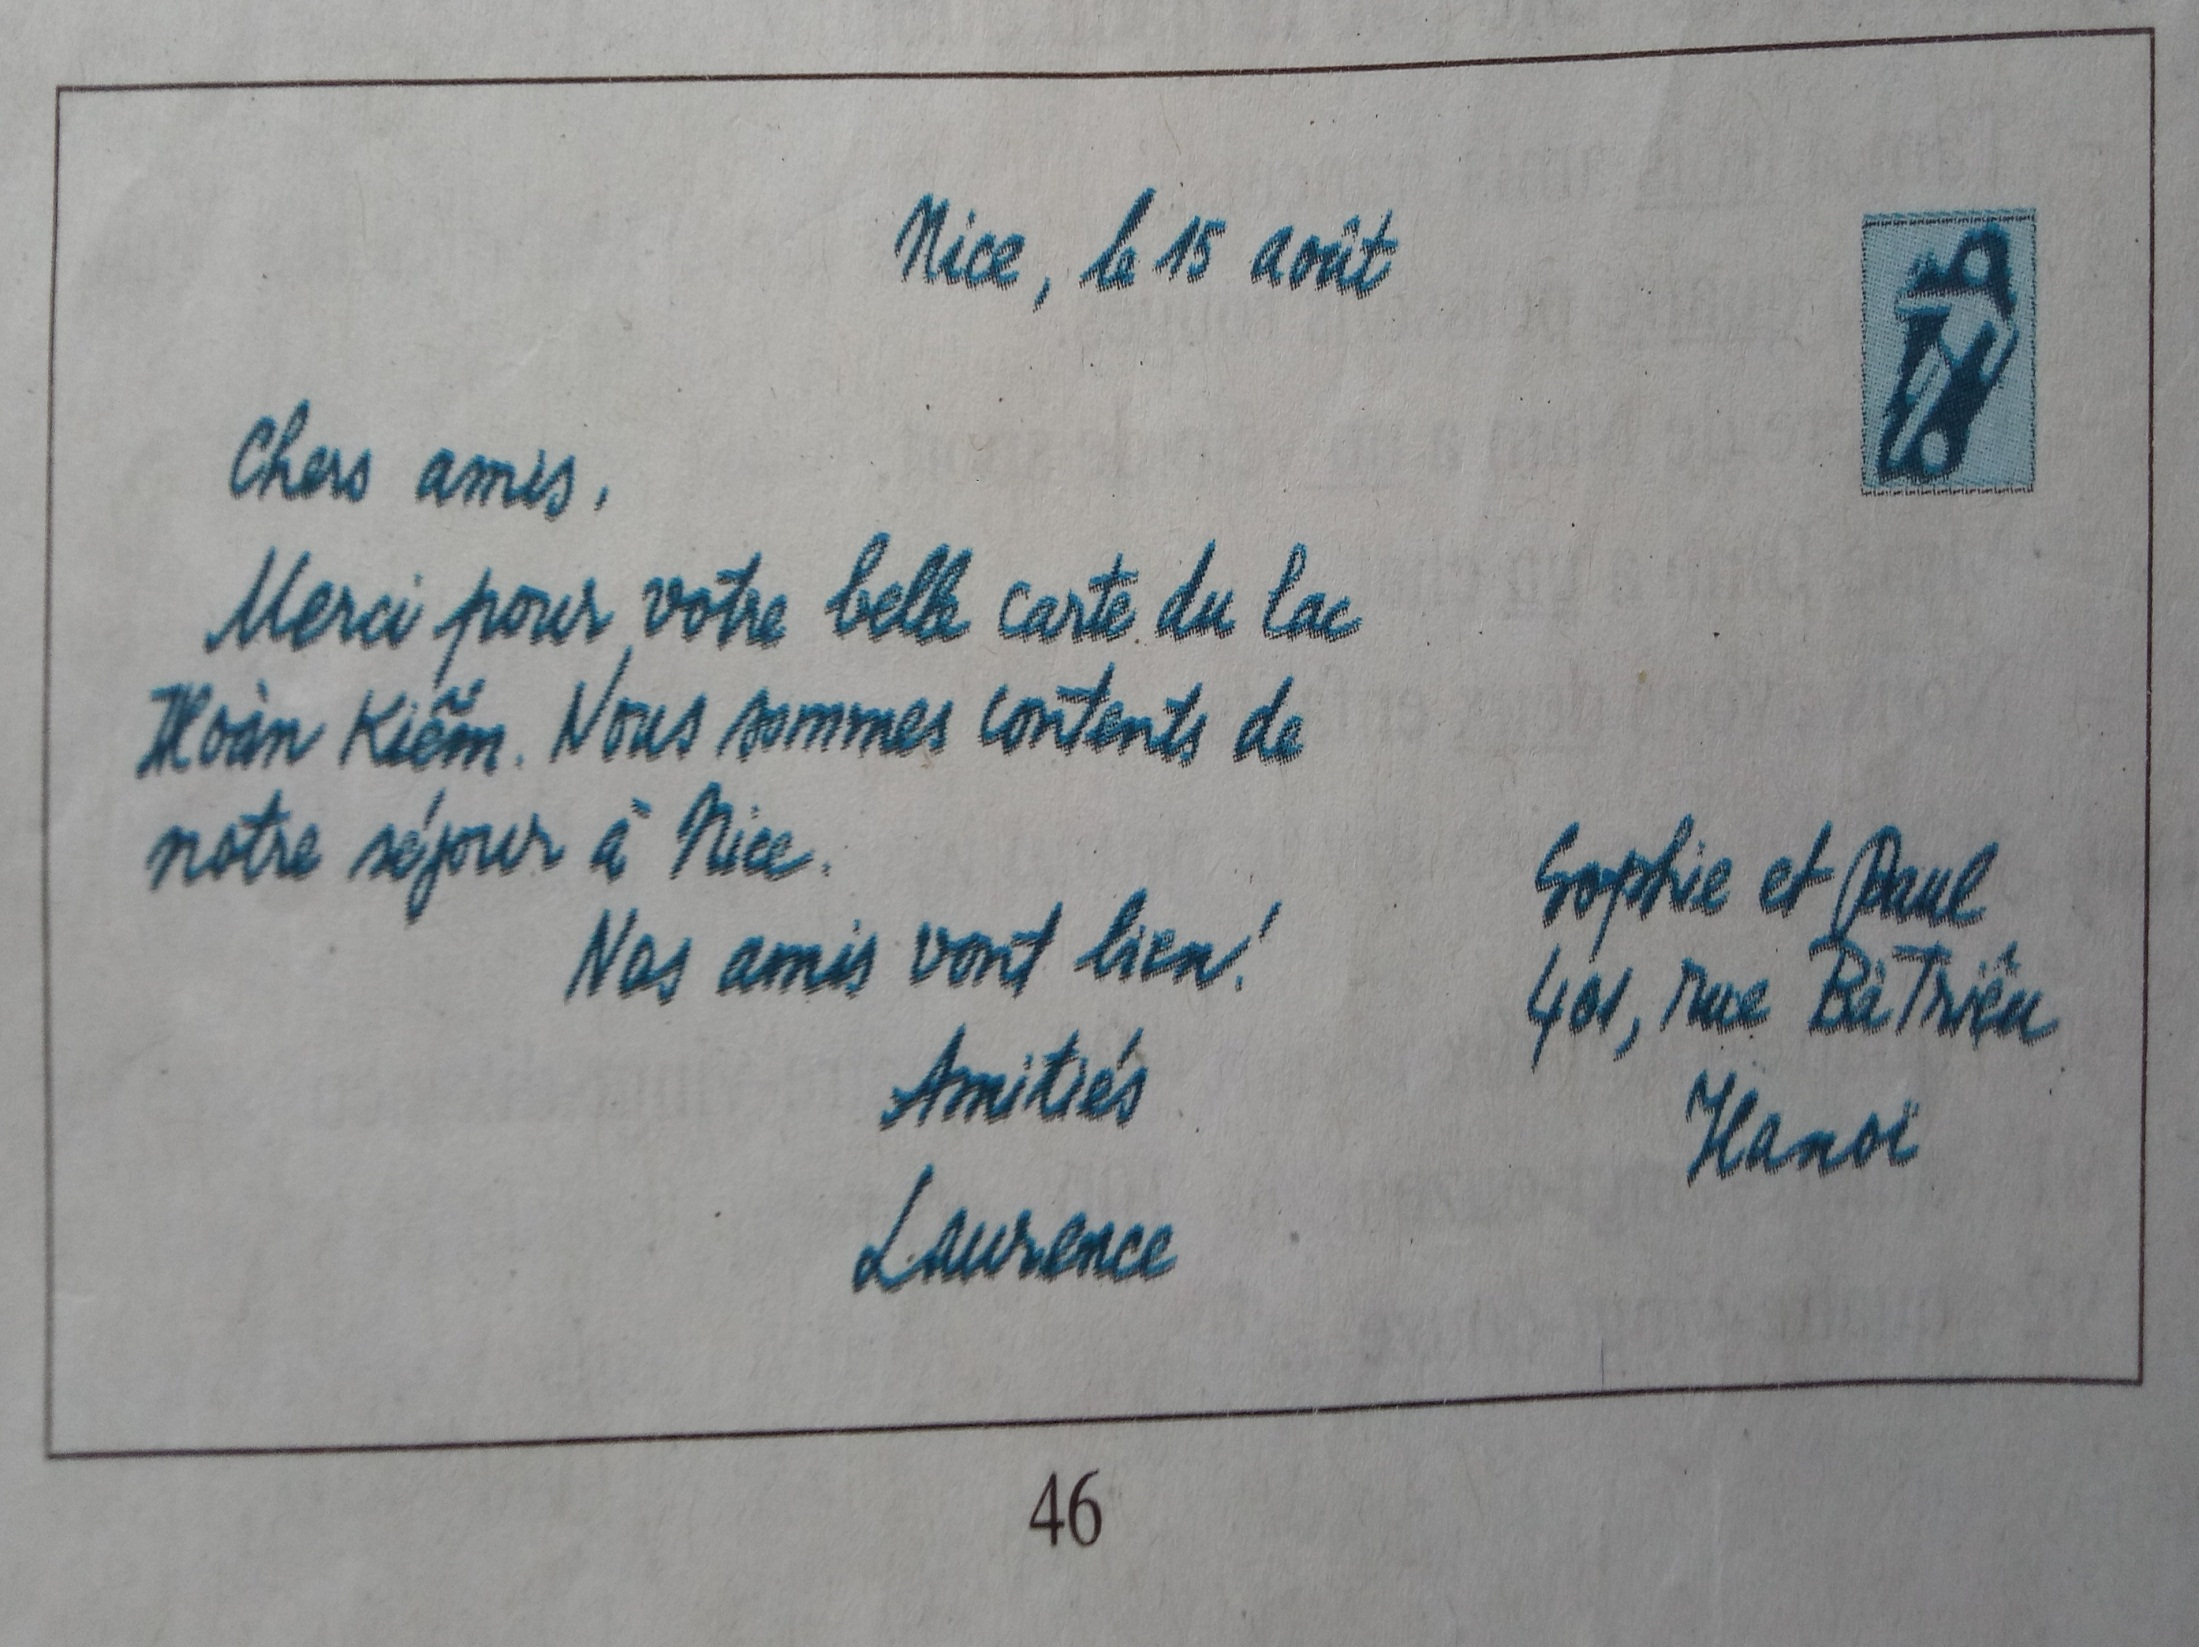 Nice, le 15 août
Chers amis,
Merci pour votre belle carte du lac
Hoàn Kiếm. Nous sommes contents de
notre séjour à Nice.
Nos amis vont bien!
Amitiés
Laurence
Sophie et Paul
401, rue Bà Triệu
Hanoï
46